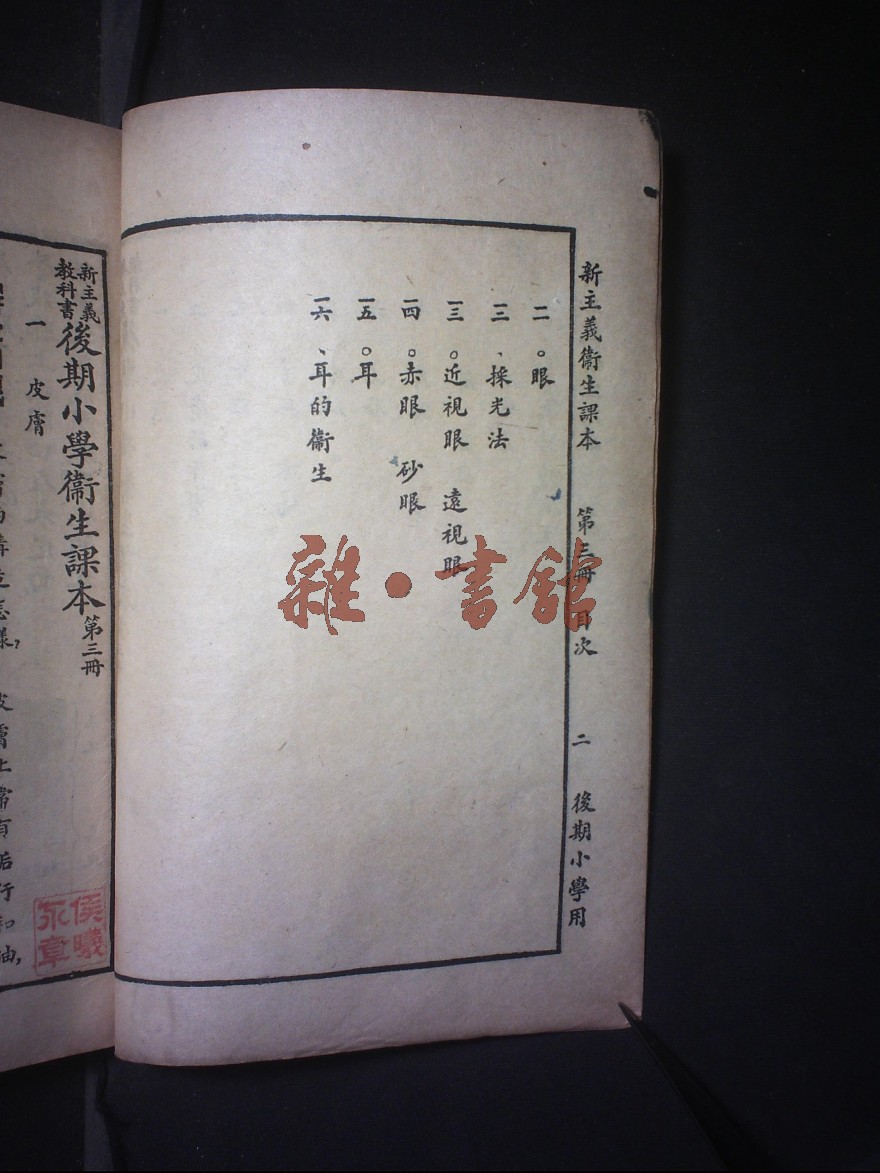 新主義衞生課本 第三冊 目次 二 後期小學用
一一。眼
一二、採光法
一三。近視眼 遠視眼
一四。赤眼 砂眼
一五。耳
一六、耳的衞生
雜•書館
新主義教科書
後期小學衞生課本 第三冊
一 皮膚